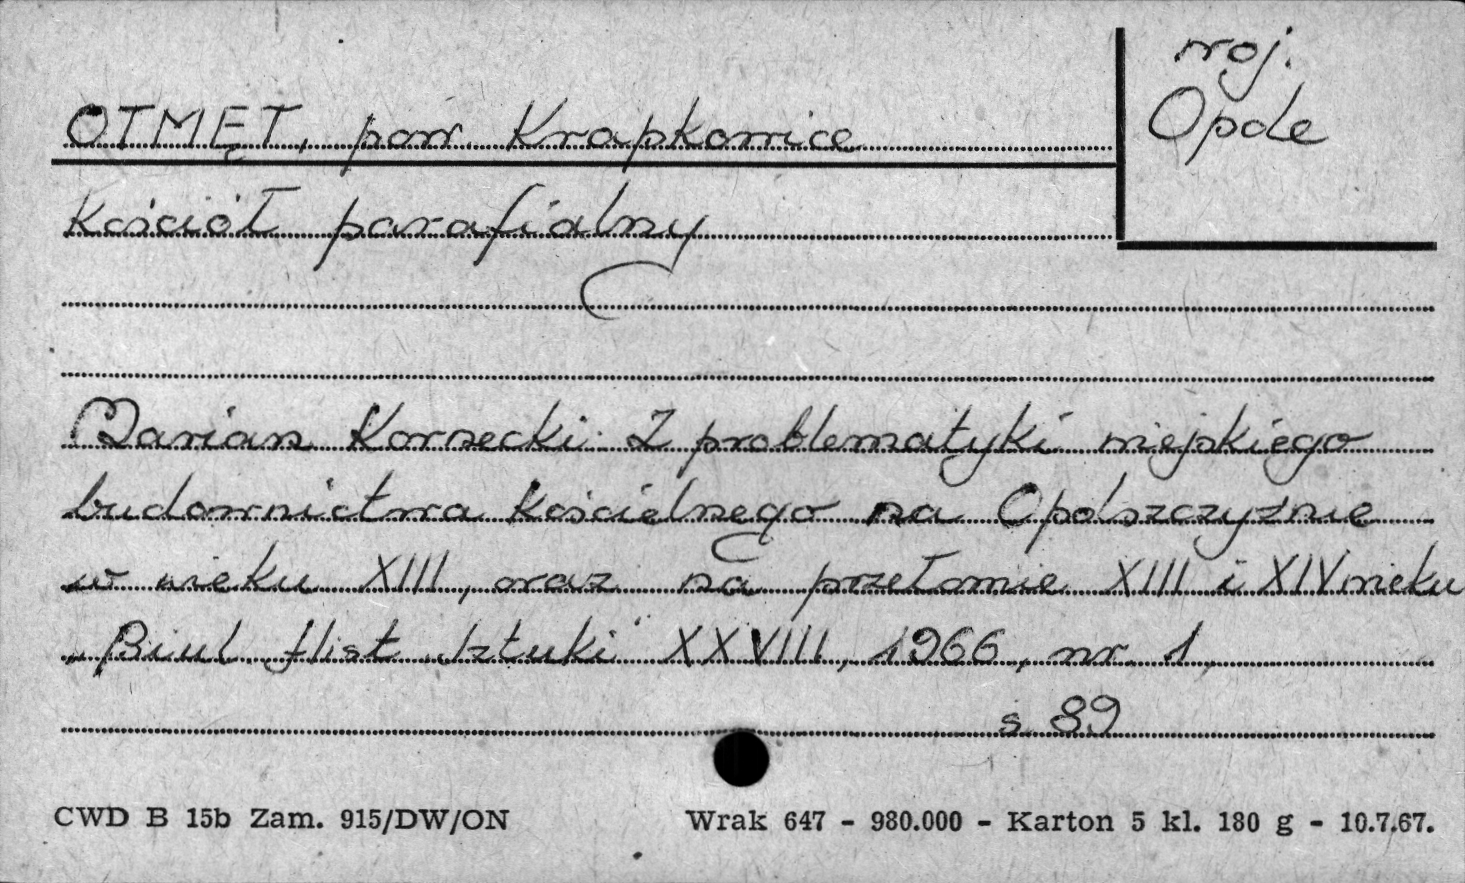 woj.
Opole
OTMĘT, pow. Krapkowice
Kościół parafialny
Marian Kornecki: Z problematyki miejskiego
budownictwa kościelnego na Opolszczyźnie
w wieku XIII, oraz na przełomie XIII i XIV wieku
„Biul. Hist. Sztuki" XXVIII, 1966, nr. 1,
s. 89
CWD B 15b Zam. 915/DW/ON Wrak 647 - 980.000 - Karton 5 kl. 180 g - 10.7.67.